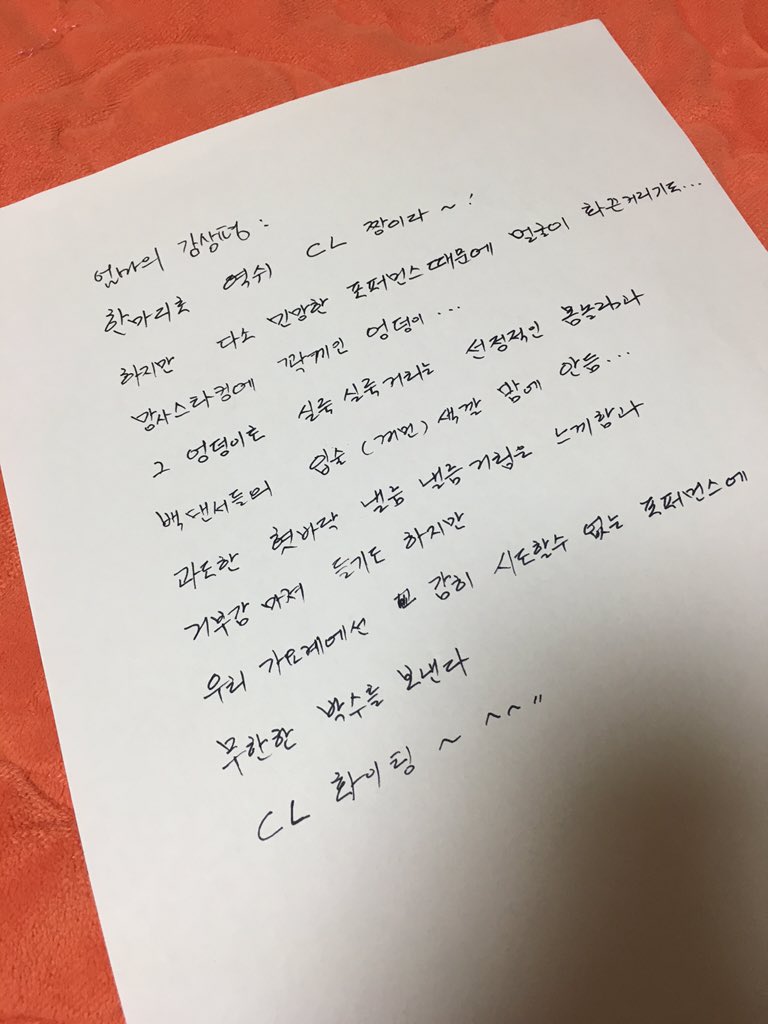 엄마의 감상평 :
한마리로 역쉬 CL 짱이라 ~ !
하지만 다소 민망한 포퍼먼스때문에 얼굴이 화끈거리기도...
망사스타킹에 꽉께인 엉덩이...
그 엉덩이로 실룩실룩거리는 선정적인 몸놀림과
백댄서들의 입술(꺼먼) 색깔 맘에 안듬...
과도한 혓바닥 낼름 낼름거림은 느끼함과
거부감마져 들기도 하지만
우리 가요계에선 감히 시도할수 없는 포퍼먼스에
무한한 박수를 보낸다
CL 화이팅 ~ ~~"